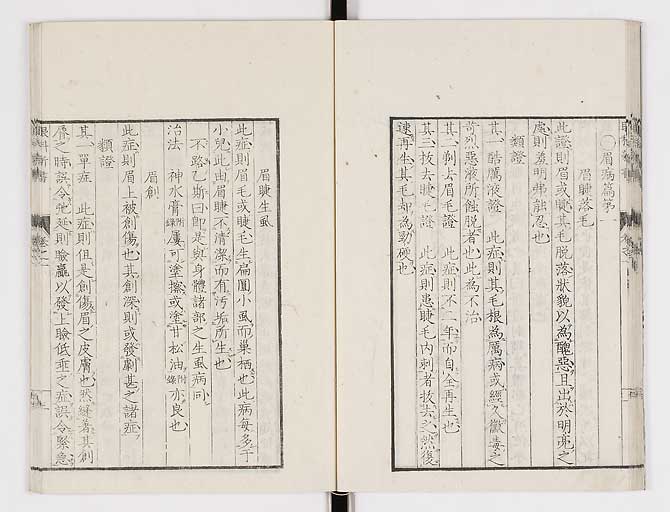 ○眉病篇第一
眉睫落毛
此證則眉或睫其毛脫落狀貌以為醜惡且出於明亮之
處則羞明弗能忍也
類證
其一酷厲液證　此症則其毛根為厲病或經久黴毒之
苛烈惡液所蝕脫者也此為不治
其二剃去眉毛證　此症則不二年而自全再生也
其三拔去睫毛證　此症則患睫毛內刺者拔去之然後
速再生其毛却為勁硬也
眉睫生虱
此症則眉毛或睫毛生扁圓小虱而巢栖也此病每多于
小兒此由眉睫不清潔而有汚垢所生也
不路乙斯曰卽是與身體諸部之生虱病同
治法　神水膏附錄屢可塗擦或塗甘松油附錄亦良也
眉創
此症則眉上被創傷也其創深則或發劇甚之諸症
類證
其一單症　此症則但是創傷眉之皮膚也然縫著其創
傷之時誤令弛延則瞼羸以發上瞼低垂之症誤令緊急
眼科新書
卷之一